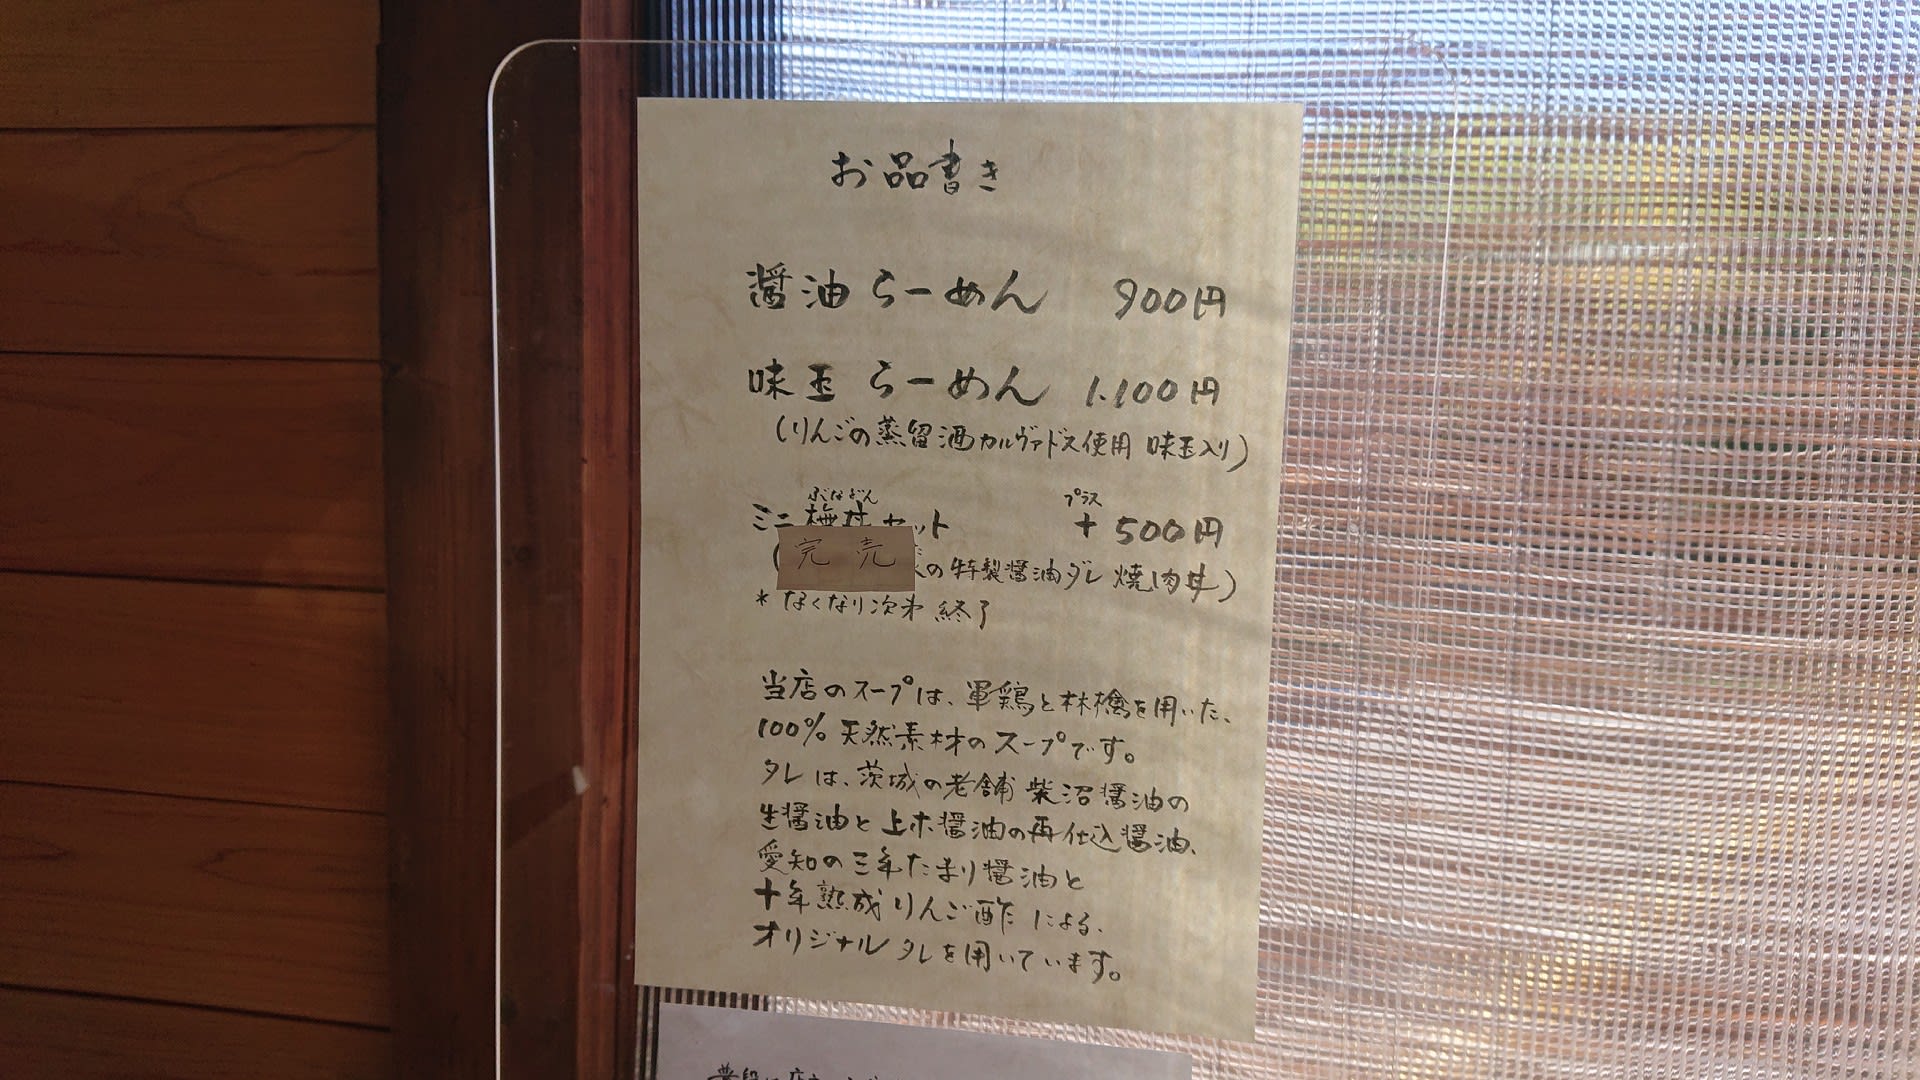 お品書き
醤油らーめん 900円
味玉らーめん 1.100円
(りんごの蒸留酒カルヴァドス使用 味玉入り)
ぶなどん
プラス
ミニ橅丼セット + 500円
完売
の特製醤油ダレ 焼肉丼)
* なくなり次第 終了
当店のスープは、軍鶏と林檎を用いた、
100% 天然素材のスープです。
タレは、茨城の老舗 柴沼醤油の
生醤油と 上木醤油の再仕込醤油、
愛知の三年たまり醤油と
十年熟成りんご酢による、
オリジナルタレを用いています。